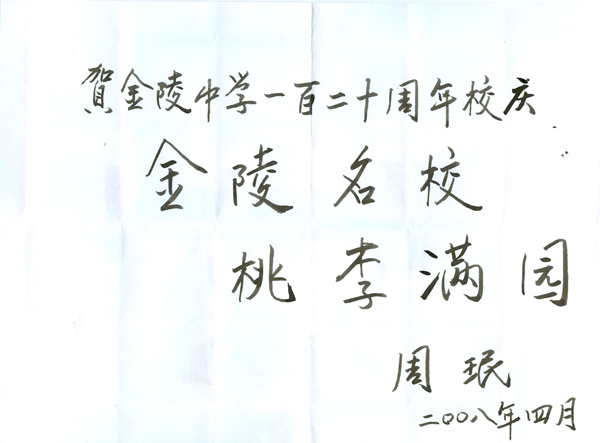 賀金陵中学一百二十周年校庆
金陵名校
桃李满园
周珉
二〇〇八年四月